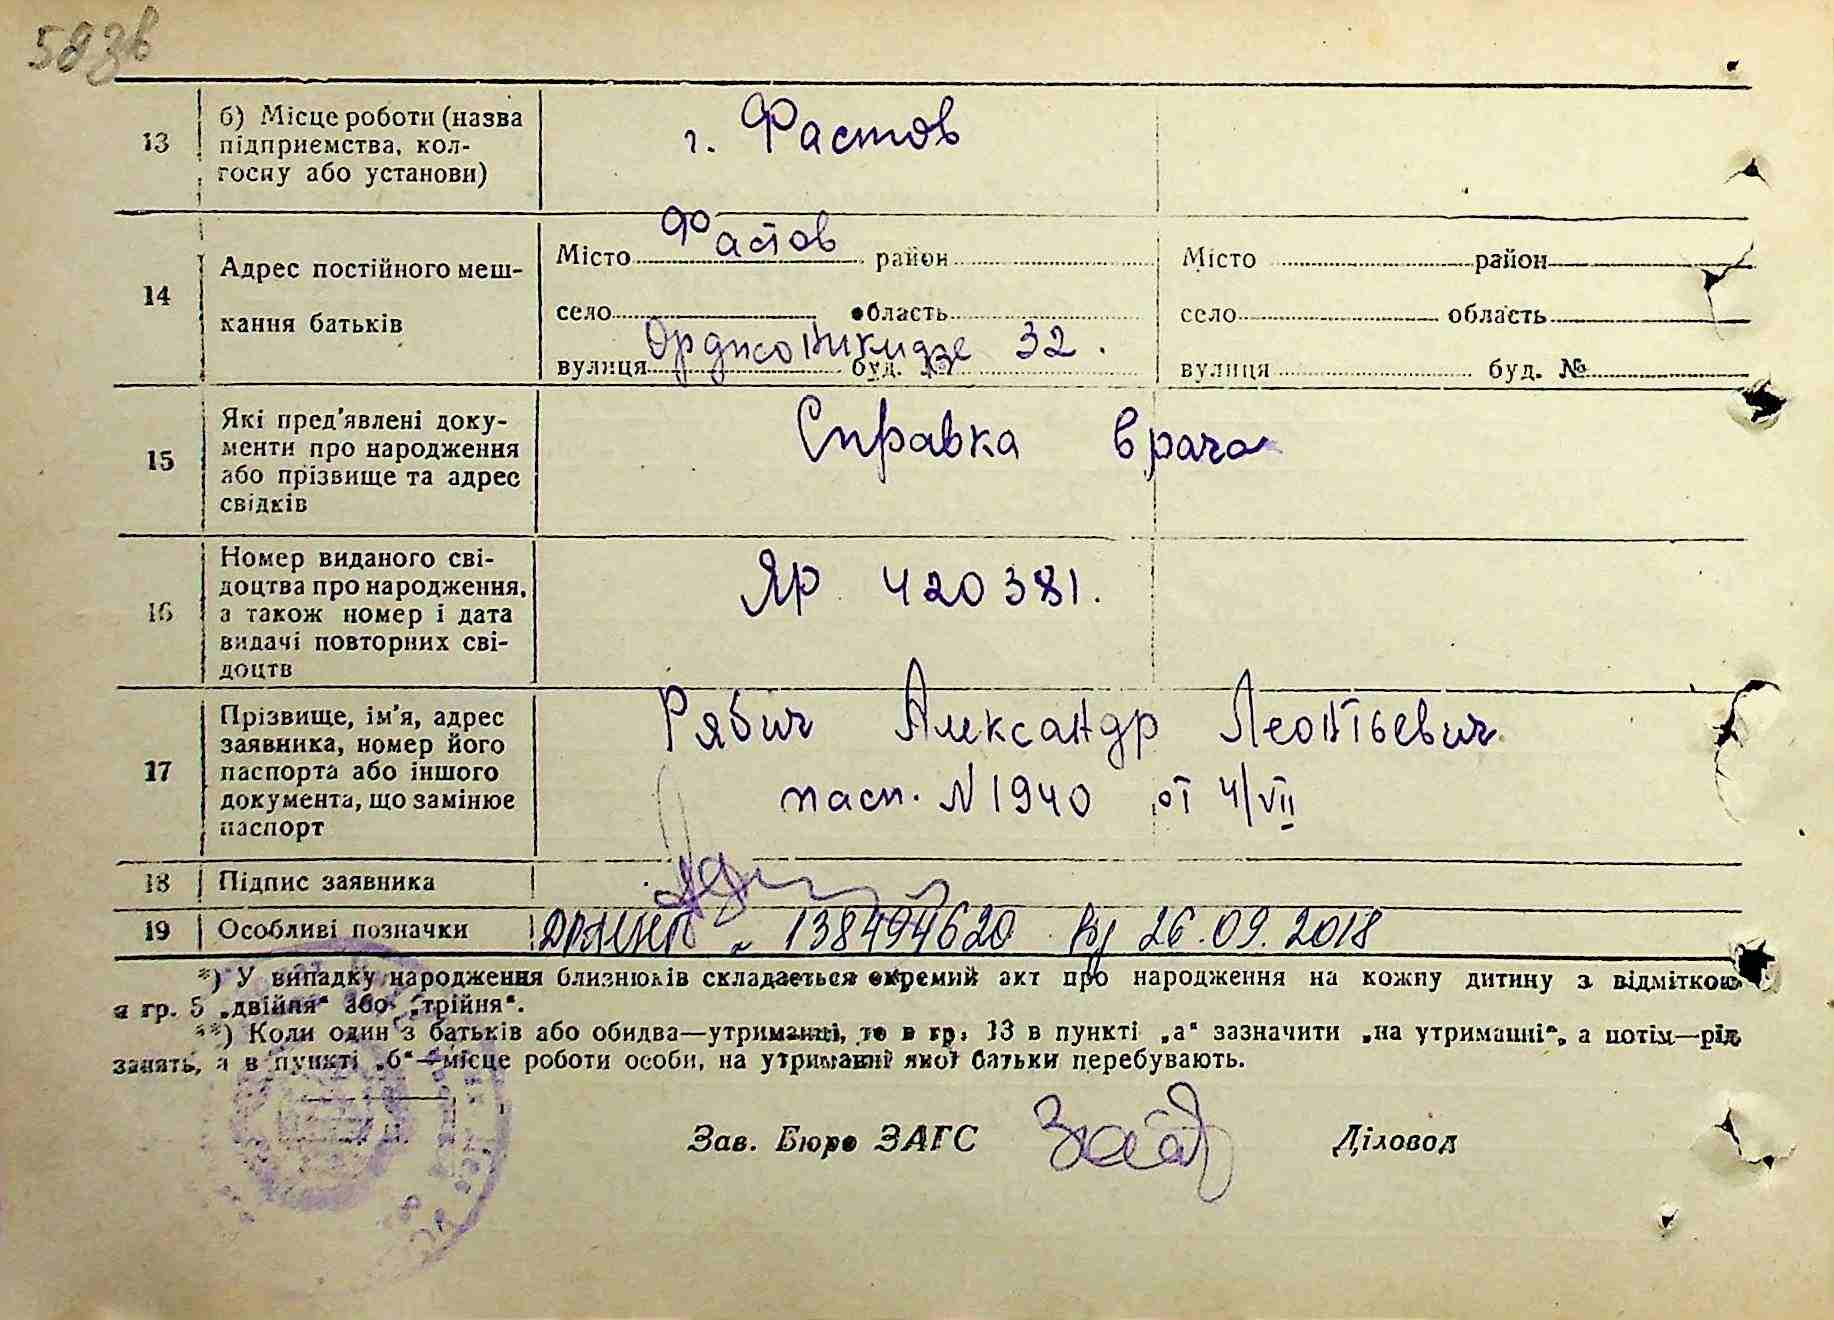 583в
13
б) Місце роботи (назва
підприємства, кол-
госпу або установи)
г. Фастов
14
Адрес постійного меш-
кання батьків
Місто Фастов район
село область
вулиця Орджоникидзе буд. № 32.
Місто район
село область
вулиця буд. №
15
Які пред'явлені доку-
менти про народження
або прізвище та адрес
свідків
Справка врача
16
Номер виданого сві-
доцтва про народження,
а також номер і дата
видачі повторних сві-
доцтв
ЯР 420381.
17
Прізвище, ім'я, адрес
заявника, номер його
паспорта або іншого
документа, що замінює
паспорт
Рябич Александр Леонтьевич
пасп. N 1940 от 4/VII
18
Підпис заявника
19
Особливі позначки
138494620 26.09.2018
*) У випадку народження близнюків складається окремий акт про народження на кожну дитину з відміткою
в гр. 5 „двійня“ або „трійня“.
**) Коли один з батьків або обидва—утриманці, то в гр. 13 в пункті „а“ зазначити „на утриманні“, а потім—рід
занять, а в пункті „б“—місце роботи особи, на утриманні якої батьки перебувають.
Зав. Бюро ЗАГС
Діловод